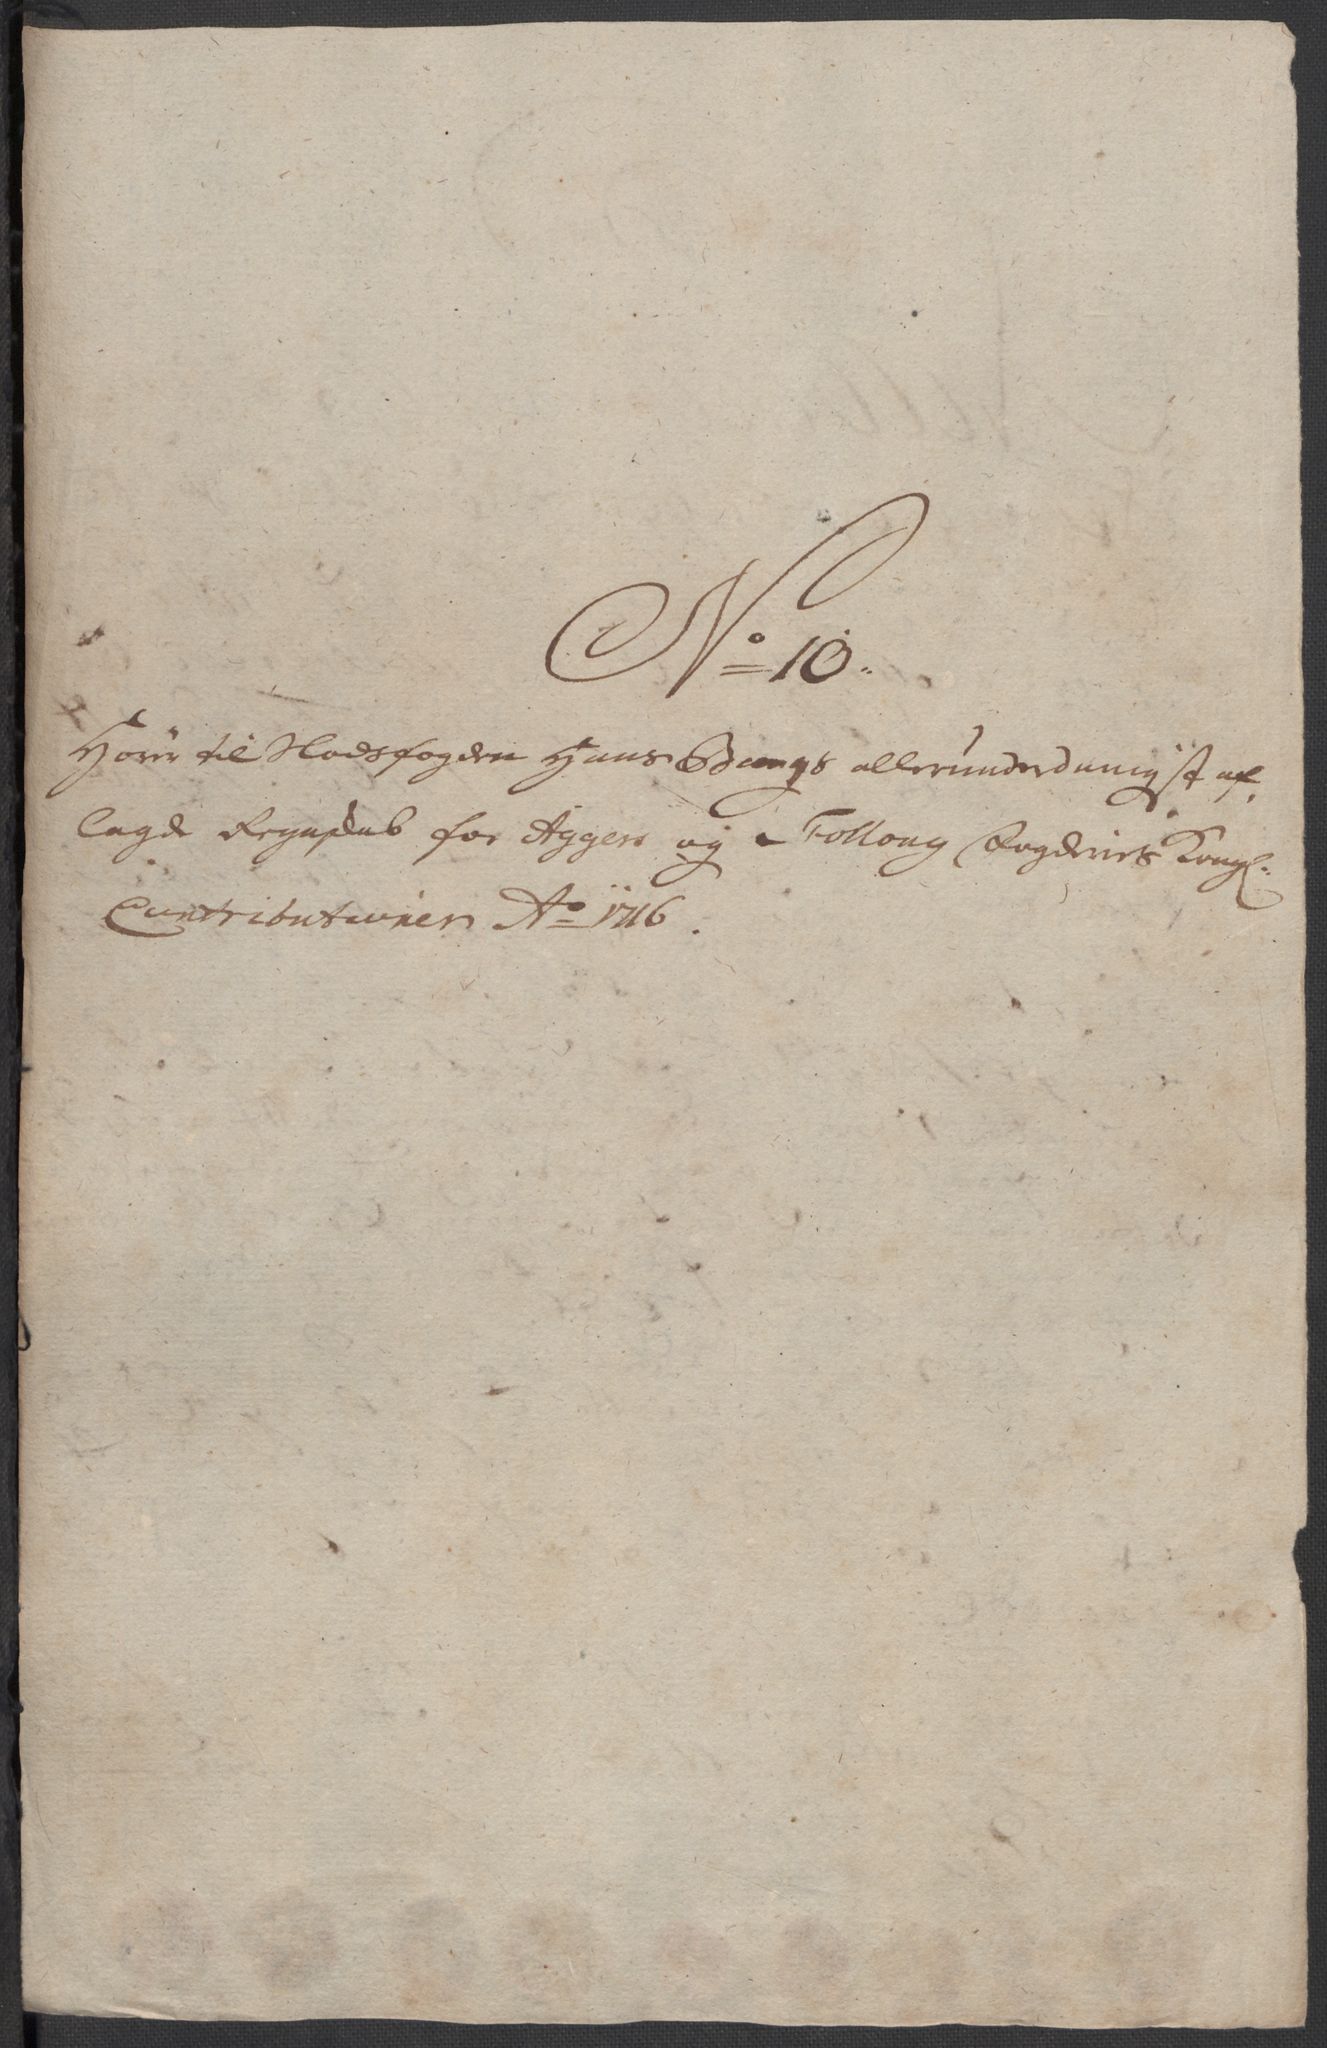 No 10
Hører til Slodsfogden Hans Bangs allerunderdanigst af„
lagde Regnskab for Aggers og Folloug Fogderies Kongl:
Contributioner Ao 1716.